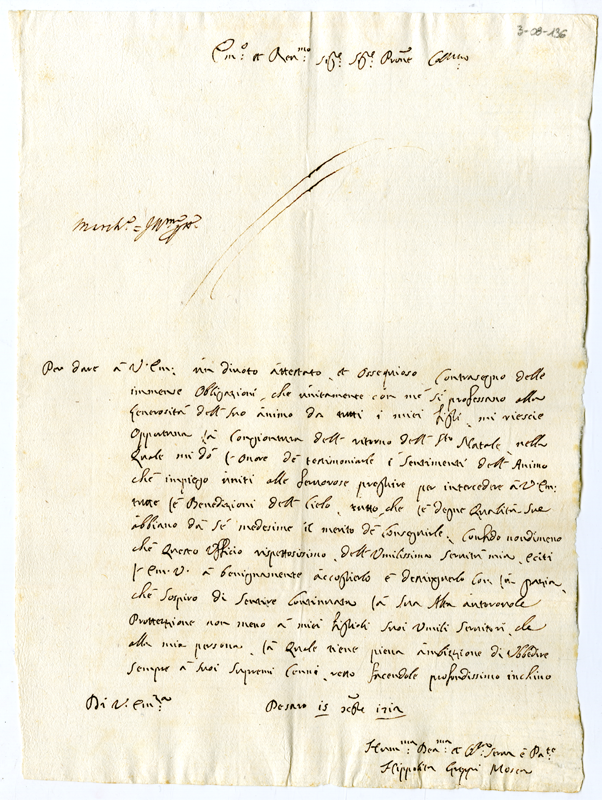 3-08-136
Em.o et Reu.mo Sig.re Sig.re Prone Coll.mo
Per dare à V. Em: un diuoto attestato, et Ossequioso Contrasegno delle
immense Obligazioni, che unitamente con mè si professano alla
Generosità dell' Suo animo da tutti i miei figli, mi riescie
Opportuna la Congiontura dell' ritorno dell' S.to Natale, nella
Quale mi dò l'Onore dè testimoniarle i Sentimenti dell' Animo
chè impiego uniti alle feruorose preghire per intercedere à V. Em:
tutte le Benedizioni dell Cielo, tutto che le degne Qualità Sue
abbiano dà Sè medesime il merito dè Conseguirle, Confido nondimeno
chè Questo Vfficio rispettosissimo dell' Umilissima Seruitù mia, l'Eciti
l'Em. V. à benignamente accoglierlo è distinguerlo Con la grazia,
chè Sospiro di Sentire Continuata la Sua Alta autoreuole
Protettione non meno à miei figlioli Suoi Umili Seruitori, che
alla mia persona, la Quale tiene piena ambitione di Vbbedire
Sempre à Suoi Supremi Cenni, resto facendole profondissimo inchino
Di V. Em.za Pesaro 15 xbre
Hum.ma Deu.ma et
Hippolita Mosca